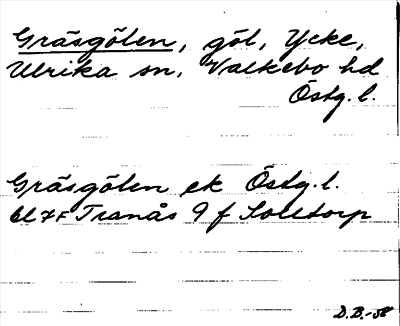 Gräsgölen, göl, Ycke,
Ulrika sn, Valkebo hd
Östg. l.
Gräsgölen ek Östg. l.
bl 7F Tranås 9 f Solltorp
D.B.-58